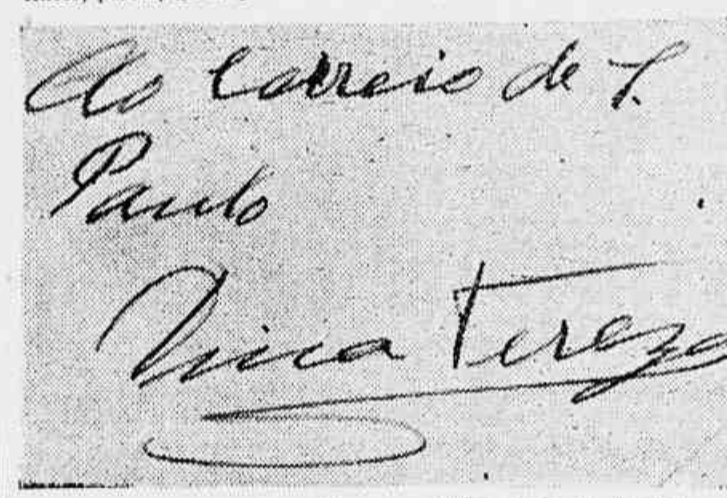 Ao Correio de S.
Paulo
Dina Tereza